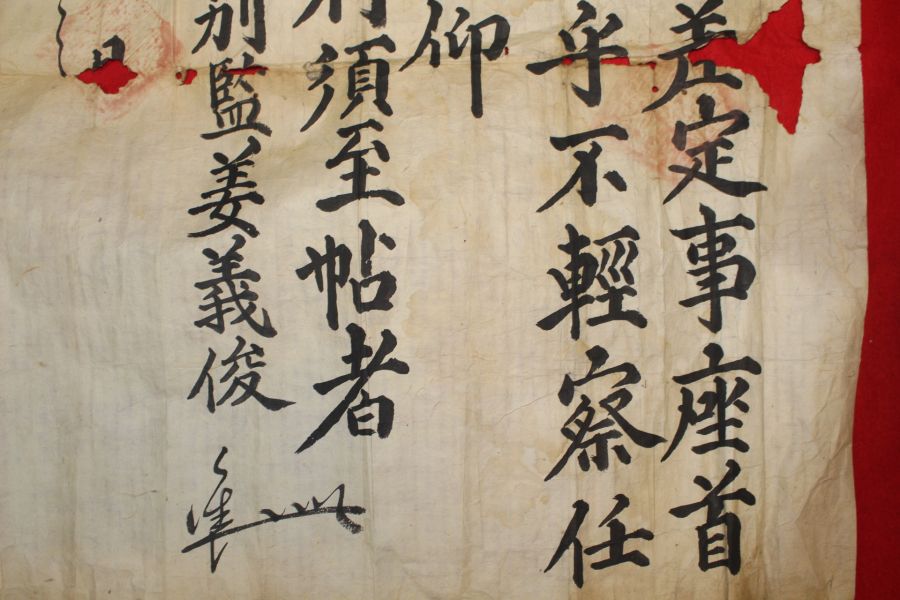 差定事座首
乎不輕察任
仰
須至帖者
別監姜義俊